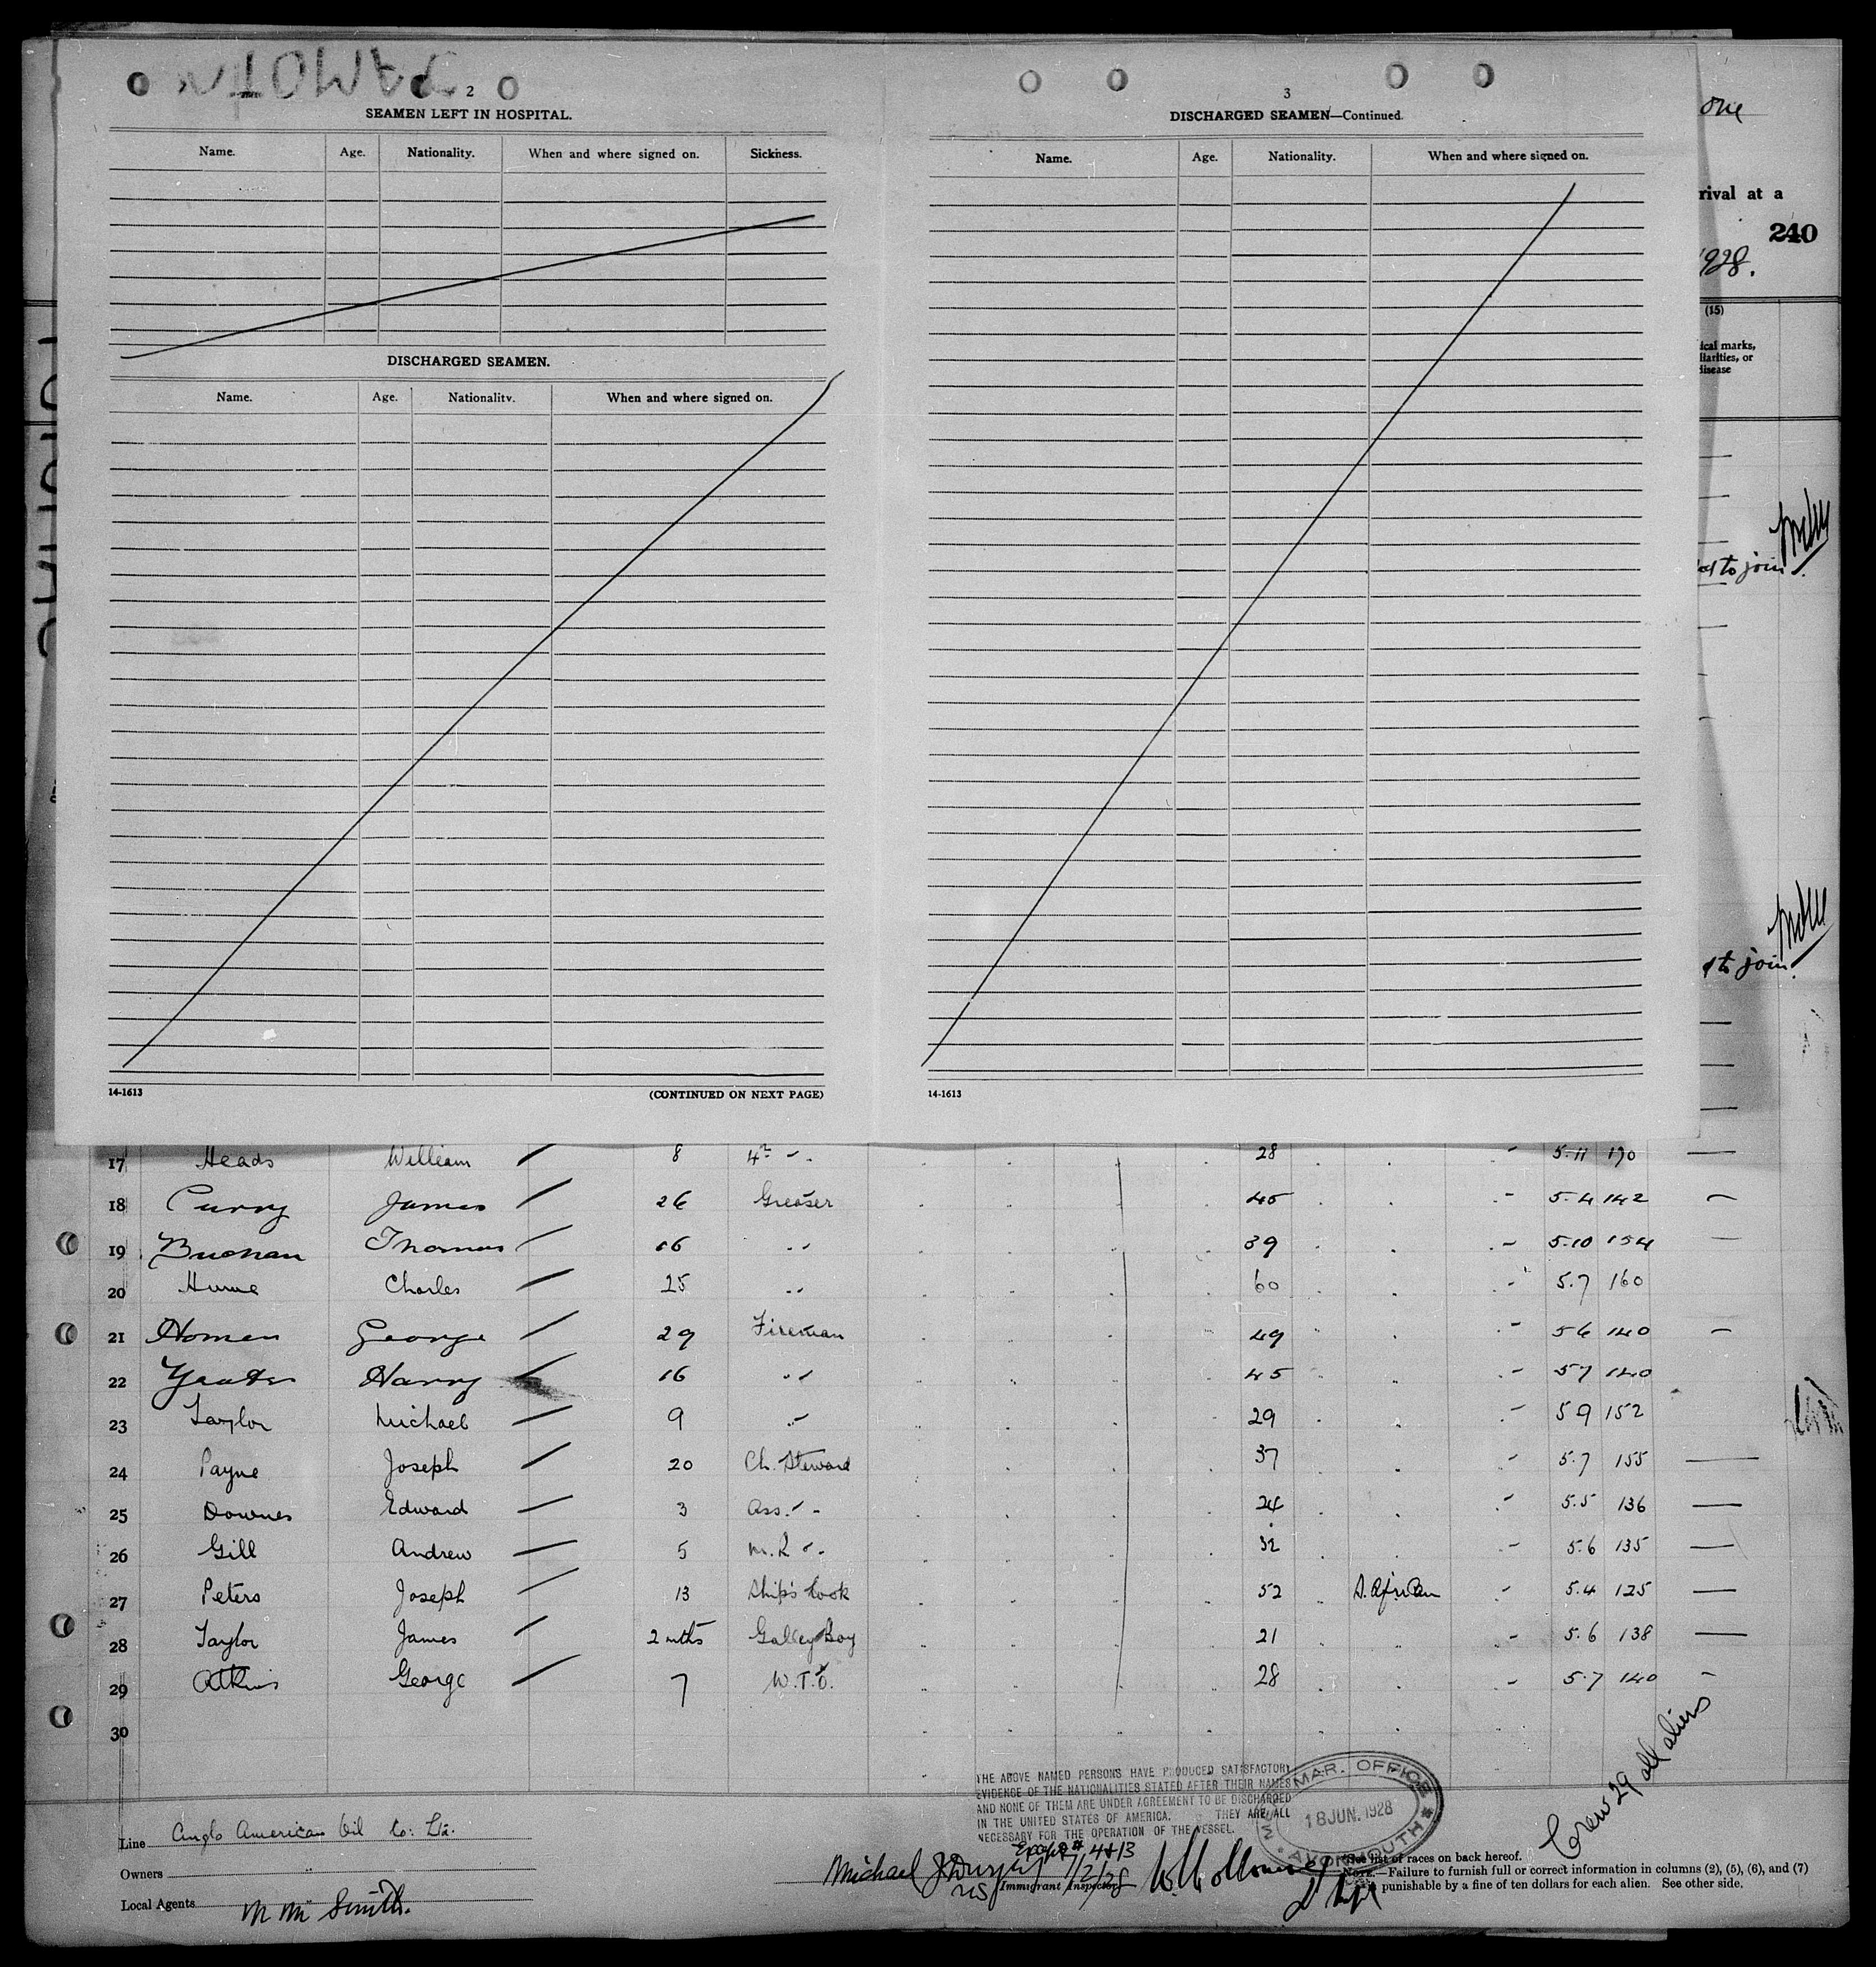 2
SEAMEN LEFT IN HOSPITAL.
Name. Age. Nationality. When and where signed on. Sickness.
DISCHARGED SEAMEN.
Name. Age. Nationality. When and where signed on.
14-1613 (CONTINUED ON NEXT PAGE)
3
DISCHARGED SEAMEN—Continued.
Name. Age. Nationality. When and where signed on.
14-1613
one
rival at a
240
1928.
(15)
ical marks,
liarities, or
disease
to join
to join
17 Heads William 8 4th " 28 5.11 190
18 Curry James 26 Greaser 45 5.4 142
19 Buchan Thomas 16 " 39 5.10 154
20 Hume Charles 25 " 60 5.7 160
21 Homen George 29 Fireman 49 5 6 140
22 Harry 16 " 45 5 7 140
23 Taylor Michael 9 " 29 5 9 152
24 Payne Joseph 20 Ch. Steward 37 5.7 155
25 Downes Edward 3 Ass. " 24 5.5 136
26 Gill Andrew 5 M.R " 32 5.6 135
27 Peters Joseph 13 Ship's Cook 52 S. African 5.4 125
28 Taylor James 2 mths Galley Boy 21 5.6 138
29 Atkins George 7 W.T.O. 28 5.7 140
30
THE ABOVE NAMED PERSONS HAVE PRODUCED SATISFACTORY
EVIDENCE OF THE NATIONALITIES STATED AFTER THEIR NAMES
AND NONE OF THEM ARE UNDER AGREEMENT TO BE DISCHARGED
IN THE UNITED STATES OF AMERICA. THEY ARE ALL
NECESSARY FOR THE OPERATION OF THE VESSEL.
MAR. OFFICE
18 JUN. 1928
AVONMOUTH
Crew 29 all aliens
Line Anglo American Oil Co: Ltd.
Owners "
Local Agents M Mc Smith.
Except # 4+13
Michael J Murphy 7/2/28
US Immigrant Inspector
See list of races on back hereof.
NOTE.—Failure to furnish full or correct information in columns (2), (5), (6), and (7)
punishable by a fine of ten dollars for each alien. See other side.